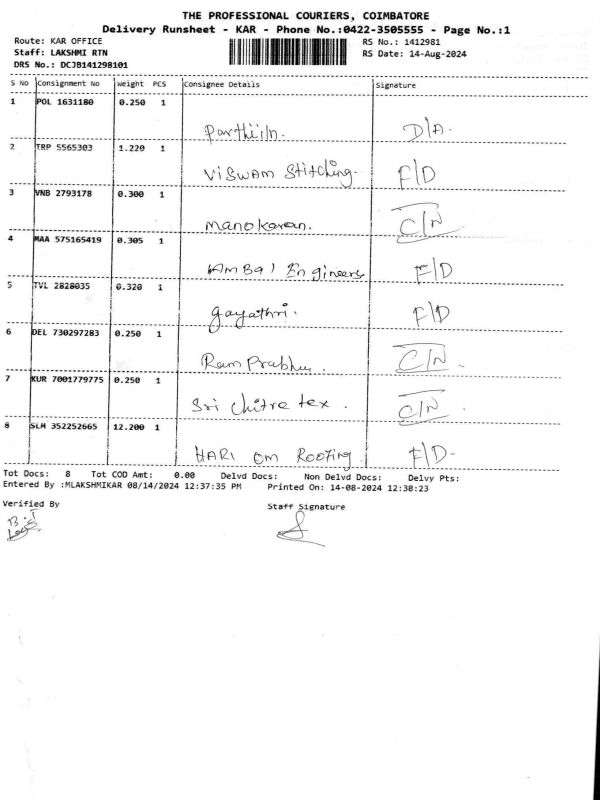 THE PROFESSIONAL COURIERS, COIMBATORE
Delivery Runsheet - KAR - Phone No.:0422-3505555 - Page No.:1
Route: KAR OFFICE RS No.: 1412981
Staff: LAKSHMI RTN RS Date: 14-Aug-2024
DRS No.: DCJB141298101
S No Consignment No Weight PCS Consignee Details Signature
1 POL 1631180 0.250 1
D/A.
2 TRP 5565303 1.220 1
Viswam Stitching. F/D
3 VNB 2793178 0.300 1
manokaran. C/N
4 MAA 575165419 0.305 1
Ambal Engineers F/D
5 TVL 2828035 0.320 1
gayathri. F/D
6 DEL 730297283 0.250 1
Ram Prabhu. C/N
7 KUR 7001779775 0.250 1
Sri chitra tex. C/N.
8 SLM 352252665 12.200 1
HARI om Roofing F/D-
Tot Docs: 8 Tot COD Amt: 0.00 Delvd Docs: Non Delvd Docs: Delvy Pts:
Entered By :MLAKSHMIKAR 08/14/2024 12:37:35 PM Printed On: 14-08-2024 12:38:23
Verified By Staff Signature